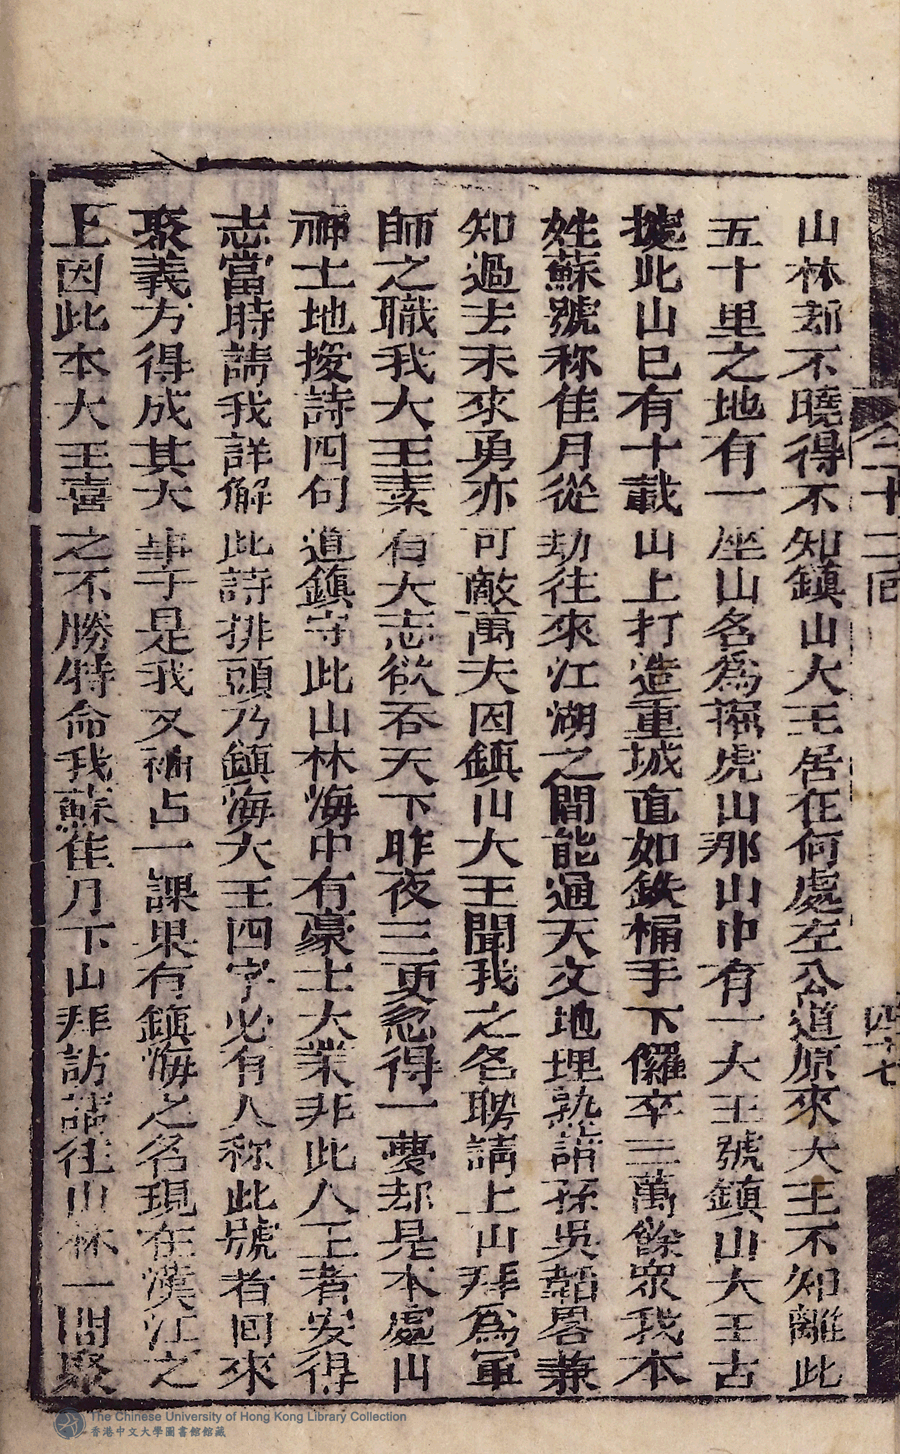 山林都不曉得不知鎮山大王居在何處左公道原來大王不知離此
五十里之地有一座山名為掘虎山那山中有一大王號鎮山大王古
㨿此山已有十載山上打造重城直如鉄桶手下儸卒三萬餘眾我本
姓蘇號称隹月從幼往來江湖之間能通天文地理熟諳孫吳韜畧兼
知過去未來勇亦可敵萬夫因鎮山大王聞我之名聘請上山拜為軍
師之職我大王素有大志欲吞天下昨夜三更忽得一夢却是本處山
神土地授詩四句道鎮守此山林海中有豪士大業非此人王者安得
志當時請我詳解此詩排頭乃鎮海大王四字必有人称此號者回來
聚義方得成其大事于是我又補占一課果有鎮海之名現在漢江之
上因此本大王喜之不勝特命我蘇隹月下山拜訪請往山林一問聚
合二十二回
四十七
The Chinese University of Hong Kong Library Collection
香港中文大學圖書館館藏